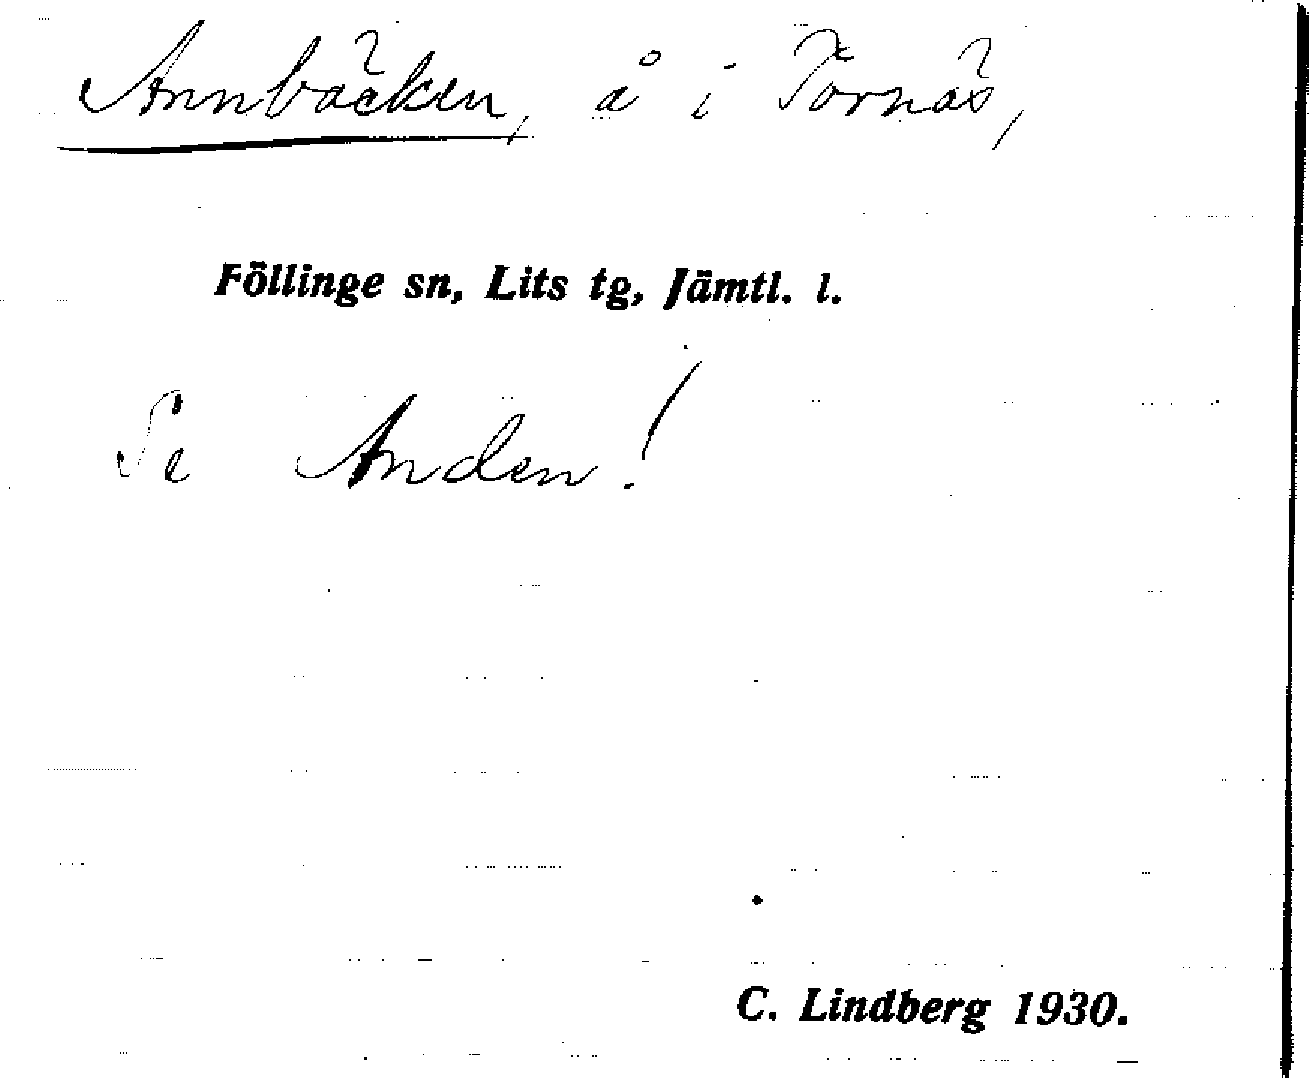 Annbäcken, å i Tornäs,
Föllinge sn, Lits tg, Jämtl. l.
Se Anden!
C. Lindberg 1930.